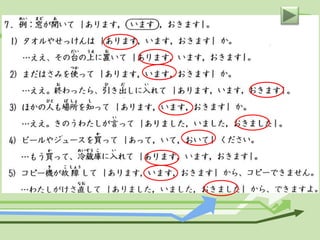 ７．例：窓が開いて｛あります，います，おきます｝。
1) タオルやせっけんは｛あります，います，おきます｝か。
…ええ、その台の上に置いて｛あります，います，おきます｝。
2) まだはさみを使って｛あります，います，おきます｝か。
…ええ。終わったら、引き出しに入れて｛あります，います，おきます｝。
3) ほかの人も場所を知って｛あります，います，おきます｝か。
…ええ。きのうわたしが言って｛ありました，いました，おきました｝。
4) ビールやジュースを買って｛あって，いて，おいて｝ください。
…もう買って、冷蔵庫に入れて｛あります，います，おきます｝。
5) コピー機が故障して｛あります，います，おきます｝から、コピーできません。
…わたしがけさ直して｛ありました，いました，おきました｝から、できますよ。